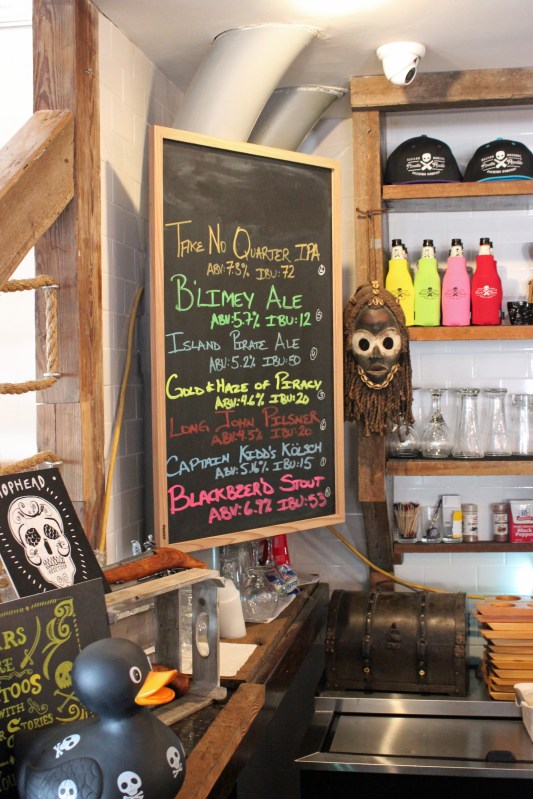 TAKE NO QUARTER IPA
ABV:7.8% IBU:72
B'LIMEY ALE
ABV:5.7% IBU:12
ISLAND PIRATE ALE
ABV:5.2% IBU:50
GOLD & HAZE OF PIRACY
ABV:4.6% IBU:20
LONG JOHN PILSNER
ABV:4.5% IBU:20
CAPTAIN KIDD'S KÖLSCH
ABV:5.16% IBU:15
BLACKBEER'D STOUT
ABV:6.7% IBU:53
OPHEAD
ARS
RE
TOOS
WITH
STORIES